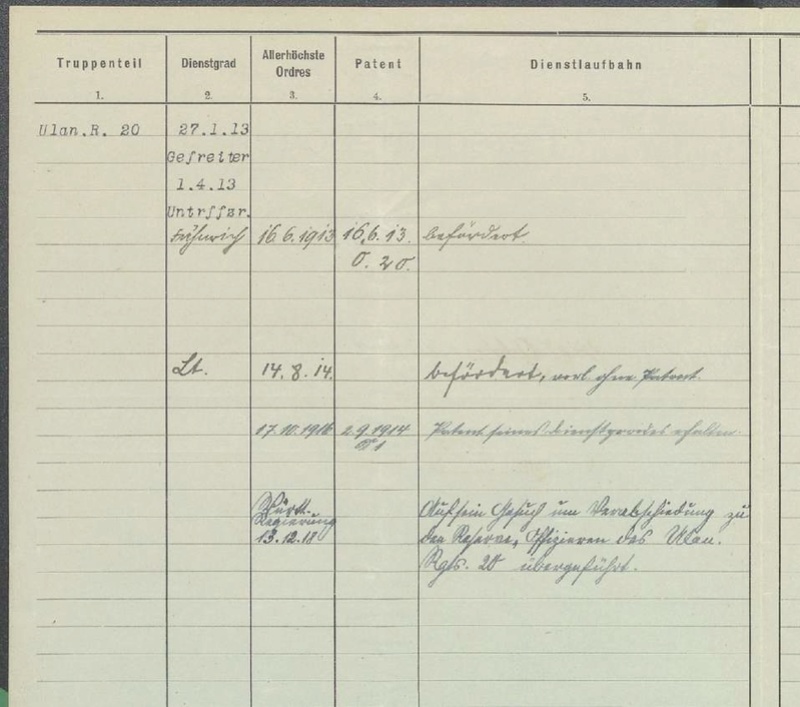 Truppenteil Dienstgrad Allerhöchste Ordres Patent Dienstlaufbahn
1. 2. 3. 4. 5.
Ulan.R. 20 27.1.13
Gefreiter
1.4.13
Untrffzr.
Fähnrich 16.6.1913 16.6.13. befördert.
O. 2 O.
Lt. 14.8.14. befördert, vorl. ohne Patent.
17.10.1916 2.9.1914 Patent seines Dienstgrades erhalten
Württ.
Regierung Auf sein Gesuch um Verabschiedung zu
13.12.18 den Reserve-Offizieren des Ulan.
Rgts. 20 übergeführt.